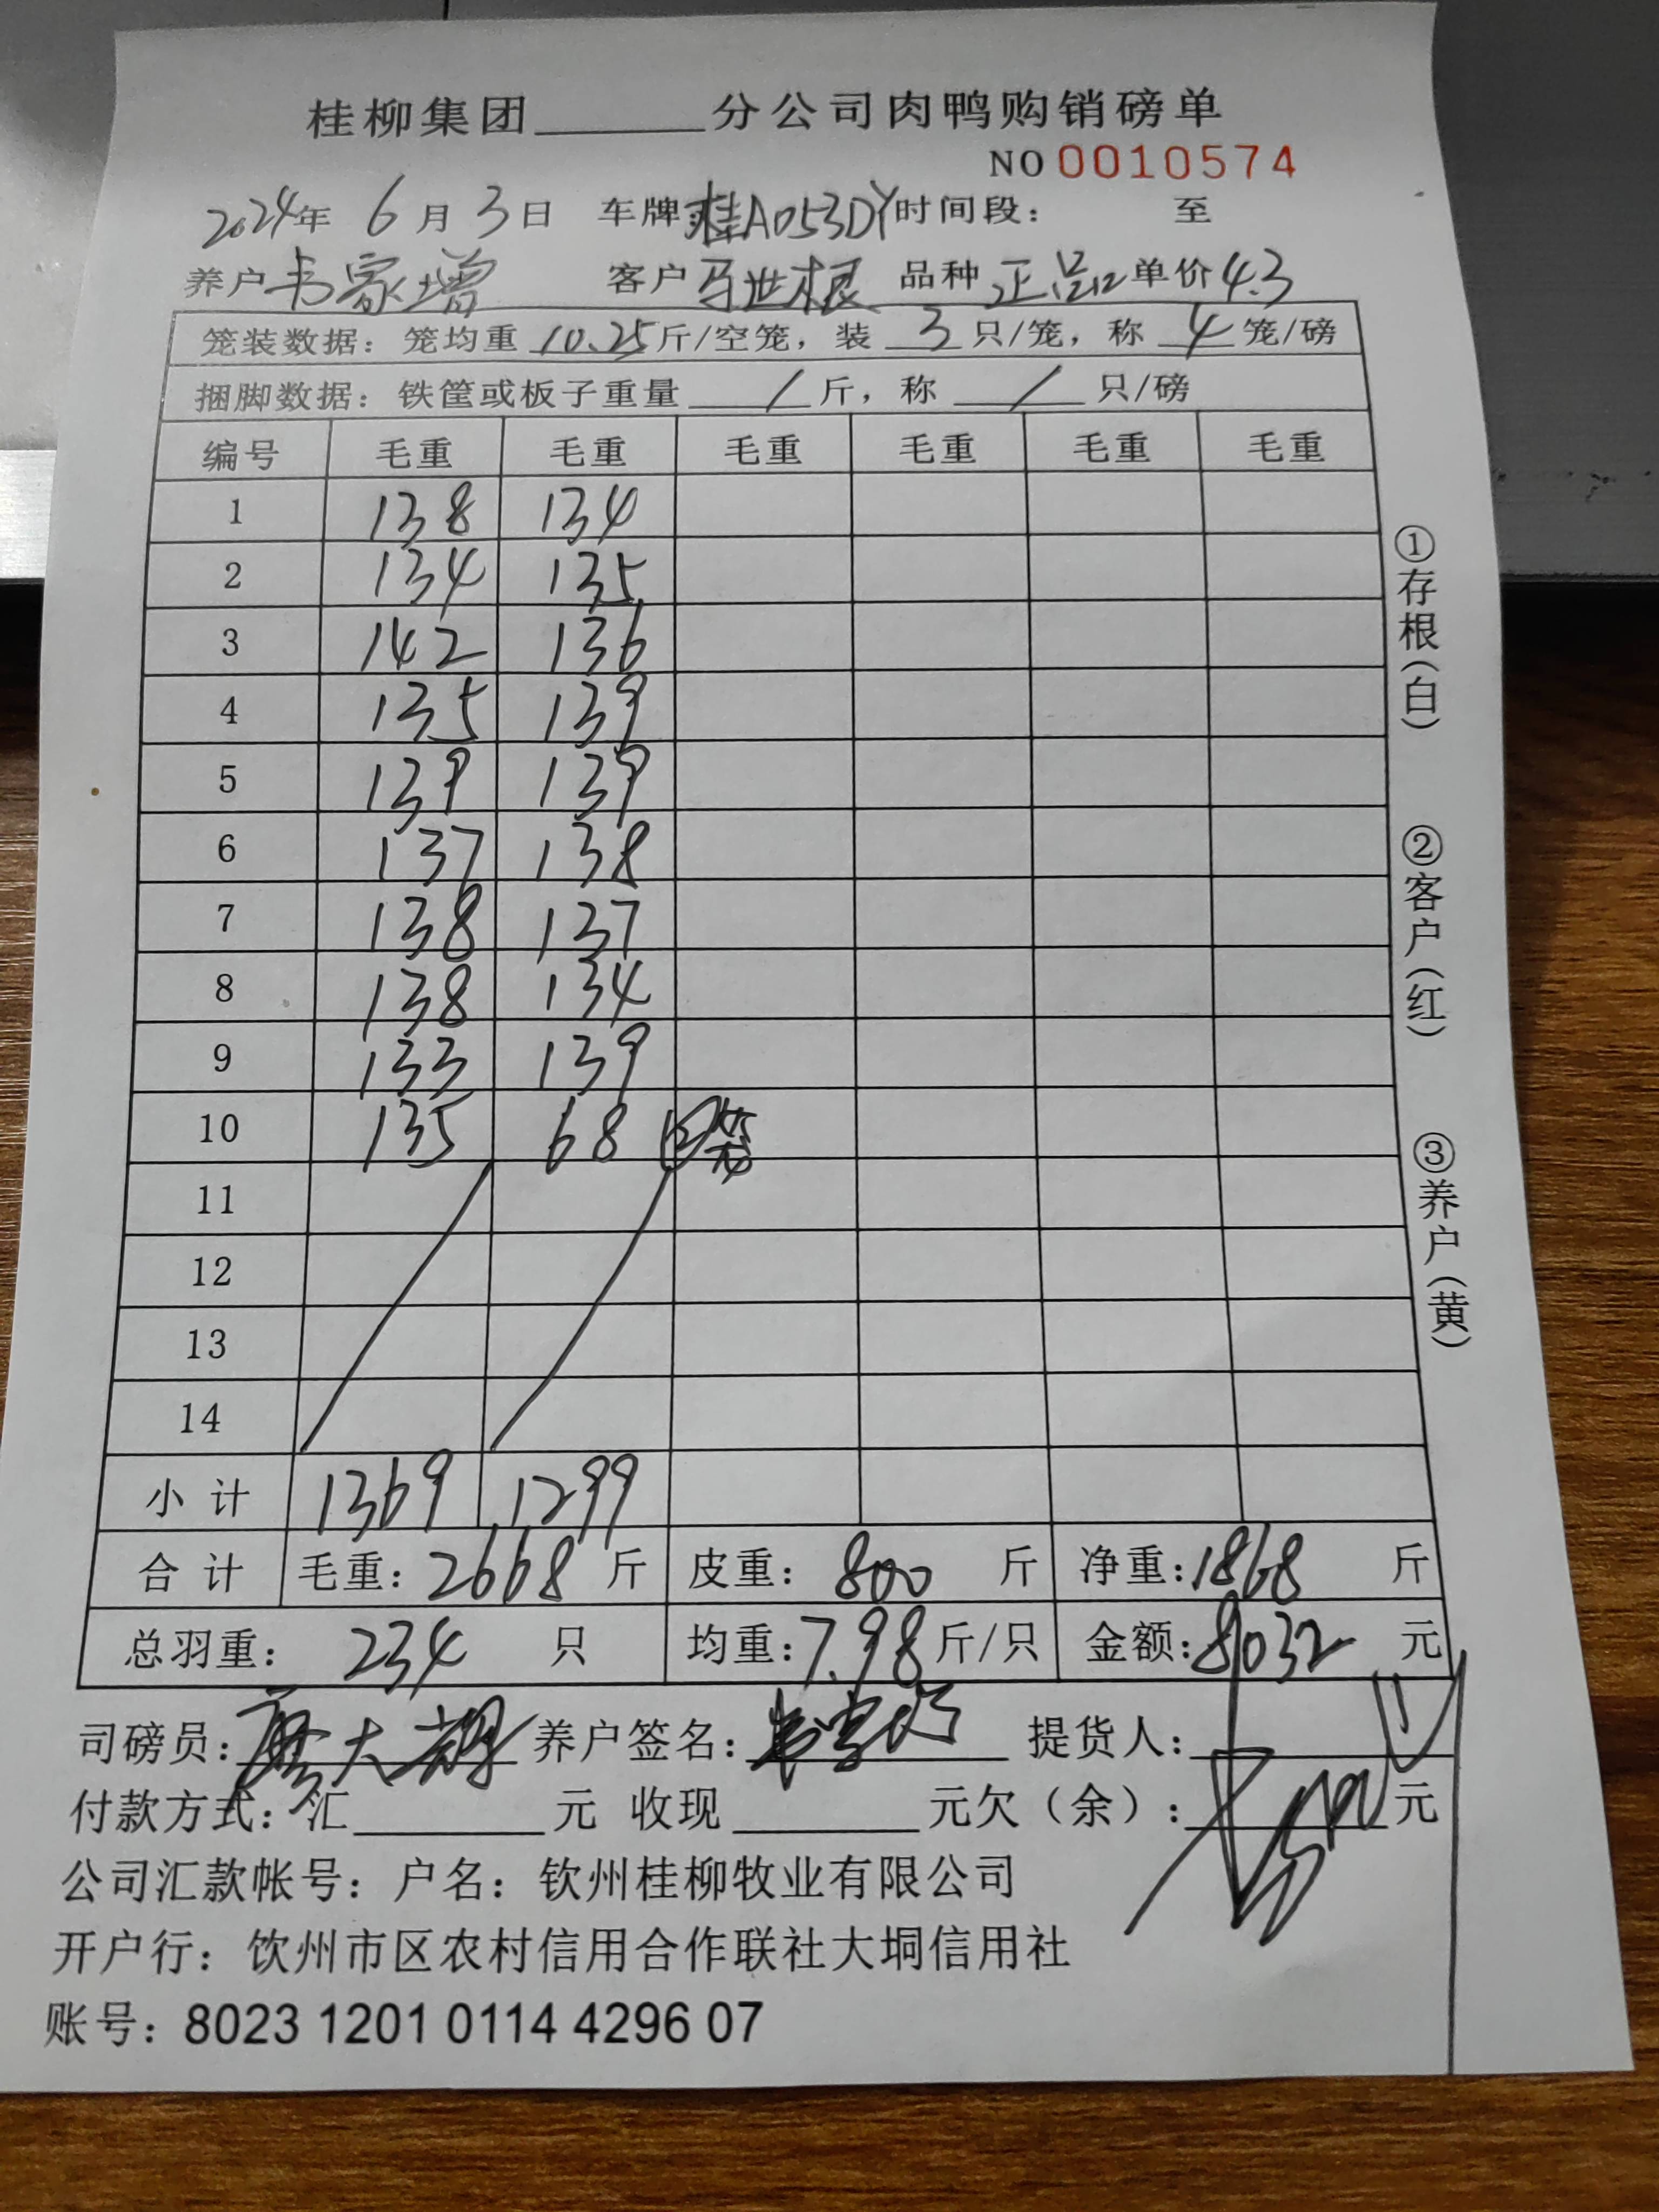 桂柳集团______分公司肉鸭购销磅单
NO 0010574
2024年 6月 3日 车牌:桂A053DY 时间段: 至
养户 韦家增 客户 马世根 品种 正品 单价 4.3
笼装数据: 笼均重 10.25 斤/空笼, 装 3 只/笼, 称 4 笼/磅
捆脚数据: 铁筐或板子重量 / 斤, 称 / 只/磅
编号 毛重 毛重 毛重 毛重 毛重 毛重
1 138 134
2 134 135
3 142 136
4 135 139
5 139 139
6 137 138
7 138 137
8 138 134
9 133 139
10 135 68 笼
11
12
13
14
小计 1369 1299
合计 毛重: 2668 斤 皮重: 800 斤 净重: 1868 斤
总羽重: 234 只 均重: 7.98 斤/只 金额: 8032 元
司磅员: 养户签名: 提货人:
付款方式: 汇______元 收现______元欠(余): 元
公司汇款帐号: 户名: 钦州桂柳牧业有限公司
开户行: 饮州市区农村信用合作联社大垌信用社
账号: 8023 1201 0114 4296 07
①存根(白)
②客户(红)
③养户(黄)